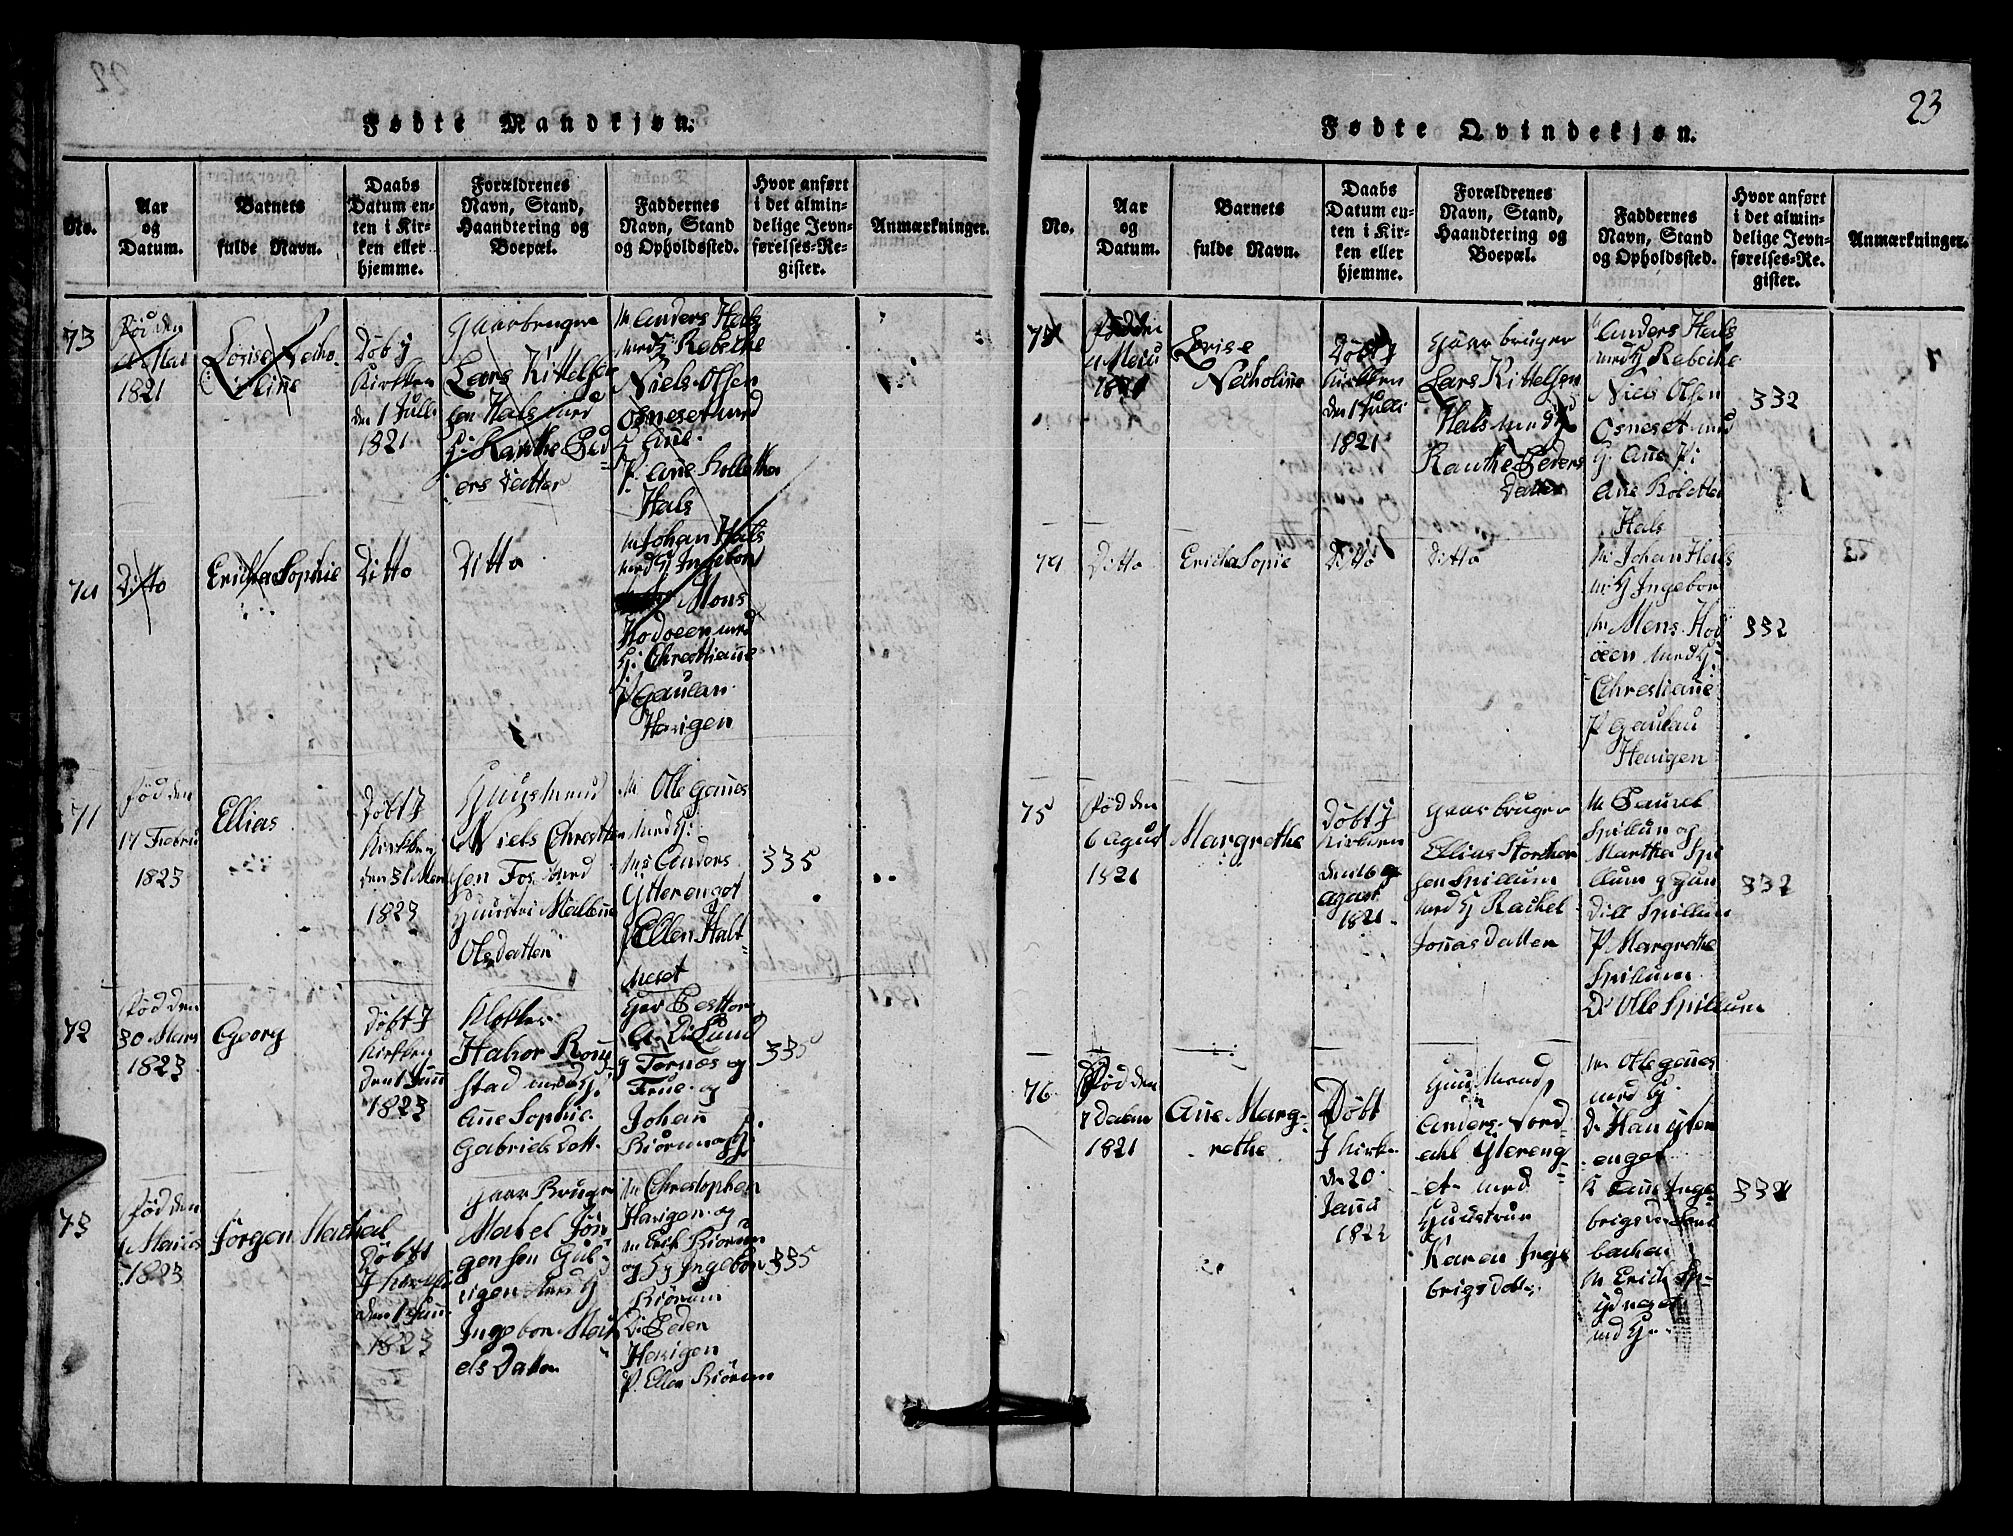 23
Fødte Mandkjøn.
No.
Aar
og
Datum.
Barnets
fulde Navn.
Daabs
Datum en-
ten i Kir-
ken eller
hjemme.
Forældrenes
Navn, Stand,
Haandtering og
Boepæl.
Faddernes
Navn, Stand
og Opholdssted.
Hvor anført
i det almin-
delige Jevn-
førelses-Re-
gister.
Anmærkninger.
73
Fød den
1821
Lovise Necho-
line
Døb J
Kirkken
den 1 Julli
1821
Gaarbruger
Lars Kittelsen
Hals med
H: Ranthe Ped-
ers Datter
Mr Anders Hals
med H Rebecke
Niels Olsen
Osneset med
H: Ane
P. Ane Kollethe
Hals
74
Ditto
Ericha Sophie
Ditto
Ditto
Mr Johan Hals
med H Ingebor
Mons
Hodøen med
H: Chrestiane
P Gaulan
Havigen
71
Fød den
17 Febru
1823
Ellias
Døbt J
Kirkken
den 31 Mar
1823
Huusmand
Niels Chrestian
sen Fos med
Huustru Malene
Olsdatter
Mr Olle Ganes
med H:
Mr Anders
Ytterenget
P Ellen Halt-
neset
335
72
Fød den
30 Mars
1823
Georg
Døbt J
Kirkken
den 1 Junii
1823
Klokker
Halvor Roug-
stad med H:
Ane Sophie
Gabriels Datt.
Her Pestor
A: D: Lund
g Tornæs og
Frue og
Johan
Kiørum og H:
335
73
Fød den
1823
Jørgen Machal
Døbt
J Kirkken
den 1 Junii
1823
Gaar Bruger
Mahel Jør
gensen Gul-
vigen med H
Ingebor Mach
els Datter
Mr Chrestophen
Havigen og
Mr Erik Kiørum
og H Ingebor
Kiørum
D: Peder
Havigen
P. Ellen Kiørum
335
Fødte Qvindekjøn.
No.
Aar
og
Datum.
Barnets
fulde Navn.
Daabs
Datum en-
ten i Kir-
ken eller
hjemme.
Forældrenes
Navn, Stand,
Haandtering og
Boepæl.
Faddernes
Navn, Stand
og Opholdssted.
Hvor anført
i det almin-
delige Jevn-
førelses-Re-
gister.
Anmærkninger.
Fød den
1821
Lovise
Necholine
Døbt J
Kirkken
den 1 Julli
1821
Gaar bruger
Lars Kittelsen
Hals med H
Ranthe Peders
Datter
Mr Anders Hals
med H Rebecke
Niels Olsen
Osneset med
H: Ane P:
Ane Kolette
Hals
332
74
Ditto
Ericha Sopie
Ditto
Ditto
Mr Johan Hals
m: H Ingebor
Mr Mons Hod
øen med H:
Chrestiane
P Gaulan
Havigen
332
75
Fød den
6 Agust
1821
Margrethe
Døbt J
Kirkken
den 16
agust
1821
Gaar bruger
Ellias Storcker
sen Spillum
med H Rachel
Jonas datter
Mr Paurel
Spillum og
Martha Spi
llum g Gun
dill Spillum
P Margrethe
Spillum
D: Olle Spillum
332
76
Fød den
1821
Ane Marg-
rethe
Døbt
J Kirke
den 20
Janu
1822
Huusmand
Anders Nord-
ahl Ytereng-
et med
Huustrue
Karen Inge
brigsdatt:
Mr Olle ganes
med H.
D. Hans Yter
enget
P Ane Inge-
brigsdatter
bachen
Mr Erich Sp-
ydneget
md H
332